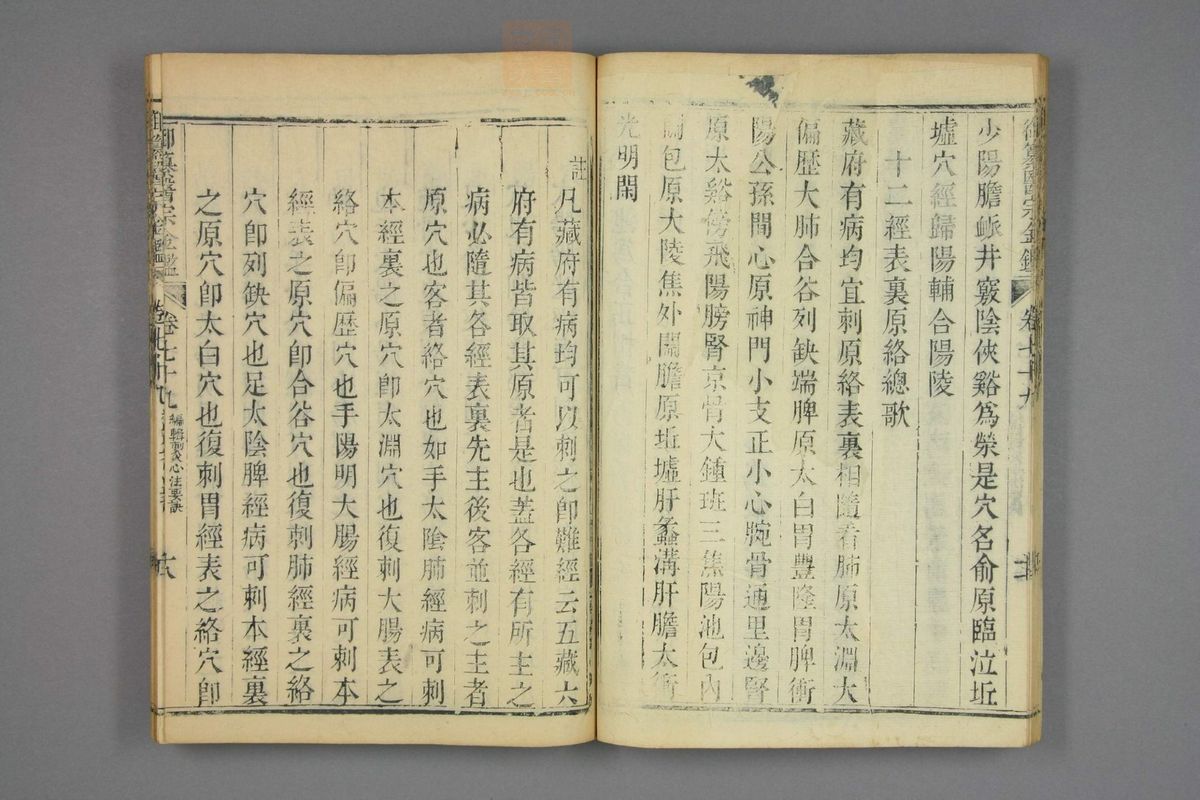 御纂醫宗金鑑 卷七十九
少陽膽䘑井竅陰俠谿為滎是穴名俞原臨泣坵
墟穴經歸陽輔合陽陵
十二經表裏原絡總歌
藏府有病均宜刺原絡表裏相隨看肺原太淵大
偏歷大肺合谷列缺端脾原太白胃豐隆胃脾衝
陽公孫間心原神門小支正小心腕骨通里邊腎
原太谿傍飛陽膀腎京骨大鍾班三焦陽池包內
關包原大陵焦外關膽原坵墟肝蠡溝肝膽太衝
光明閑
註
凡藏府有病均可以刺之卽難經云五藏六
府有病皆取其原者是也蓋各經有所主之
病必隨其各經表裏先主後客並刺之主者
原穴也客者絡穴也如手太陰肺經病可刺
本經裏之原穴卽太淵穴也復刺大腸表之
絡穴卽偏歷穴也手陽明大腸經病可刺本
經表之原穴卽合谷穴也復刺肺經裏之絡
穴卽列缺穴也足太陰脾經病可刺本經裏
之原穴卽太白穴也復刺胃經表之絡穴卽
御纂醫宗金鑑 卷七十九 編輯刺灸心法要訣